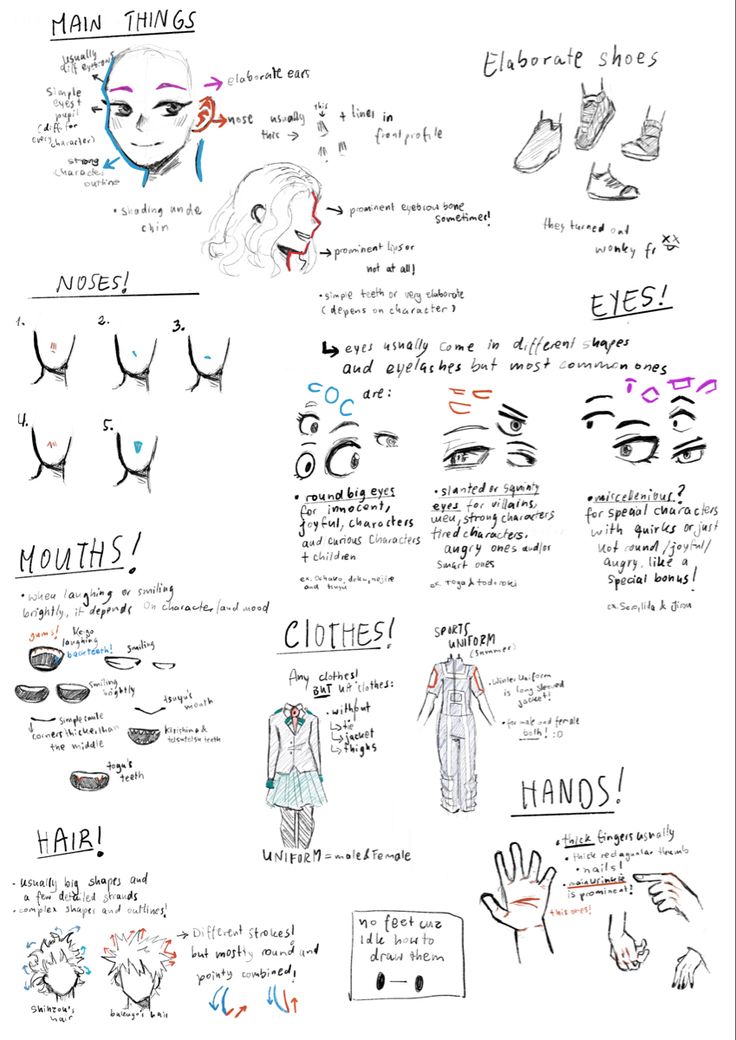 MAIN THINGS
usually
diff eyebrows
simple
eyes +
pupil
(diff for
every character)
strong
character
outline
elaborate ears
nose usually
this →
this
+ lines in
front profile
• shading unde
chin
prominent eyebrow bone
sometimes!
prominent lips or
not at all!
• simple teeth or very elaborate
(depens on character)
Elaborate shoes
they turned out
wonky fr
NOSES!
1.
2.
3.
4.
5.
EYES!
eyes usually come in different shapes
and eyelashes but most common ones
are:
• round big eyes
for innocent,
joyful, characters
and curious characters
+ children
ex. Ochako, deku, nejire
and tsuyu
• slanted or squinty
eyes for villains,
meu, strong characters
tired characters.
angry ones and/or
smart ones
ex. Toga & todoroki
• miscellenious?
for special characters
with quirks or just
not round/joyful/
angry, like a
special bonus!
ex Sero, Iida & Jirou
MOUTHS!
• when laughing or smiling
brightly, it depends on character/and mood
gums!
laughing
back teeth!
smiling
smiling
brightly
tsuyu's
mouth
simple smile
corners thicker than
the middle
kirishima &
tetsutetsu teeth
toga's
teeth
CLOTHES!
Any clothes!
BUT UA clothes:
• without
↳ tie
↳ jacket
↳ thighs
UNIFORM = male & Female
SPORTS
UNIFORM
(summer)
• Winter Uniform
is long sleeved
jacket!
• for male and female
both! :D
HANDS!
• thick fingers usually
• thick rectagular thumb
nails!
• main wrinkle
is prominent!
this ones!
HAIR!
• usually big shapes and
a few detailed strands
• complex shapes and outlines!
→ Different strokes!
but mostly round and
pointy combined!
shinzou's
hair
bakugo's hair
no feet cuz
idk how to
draw them